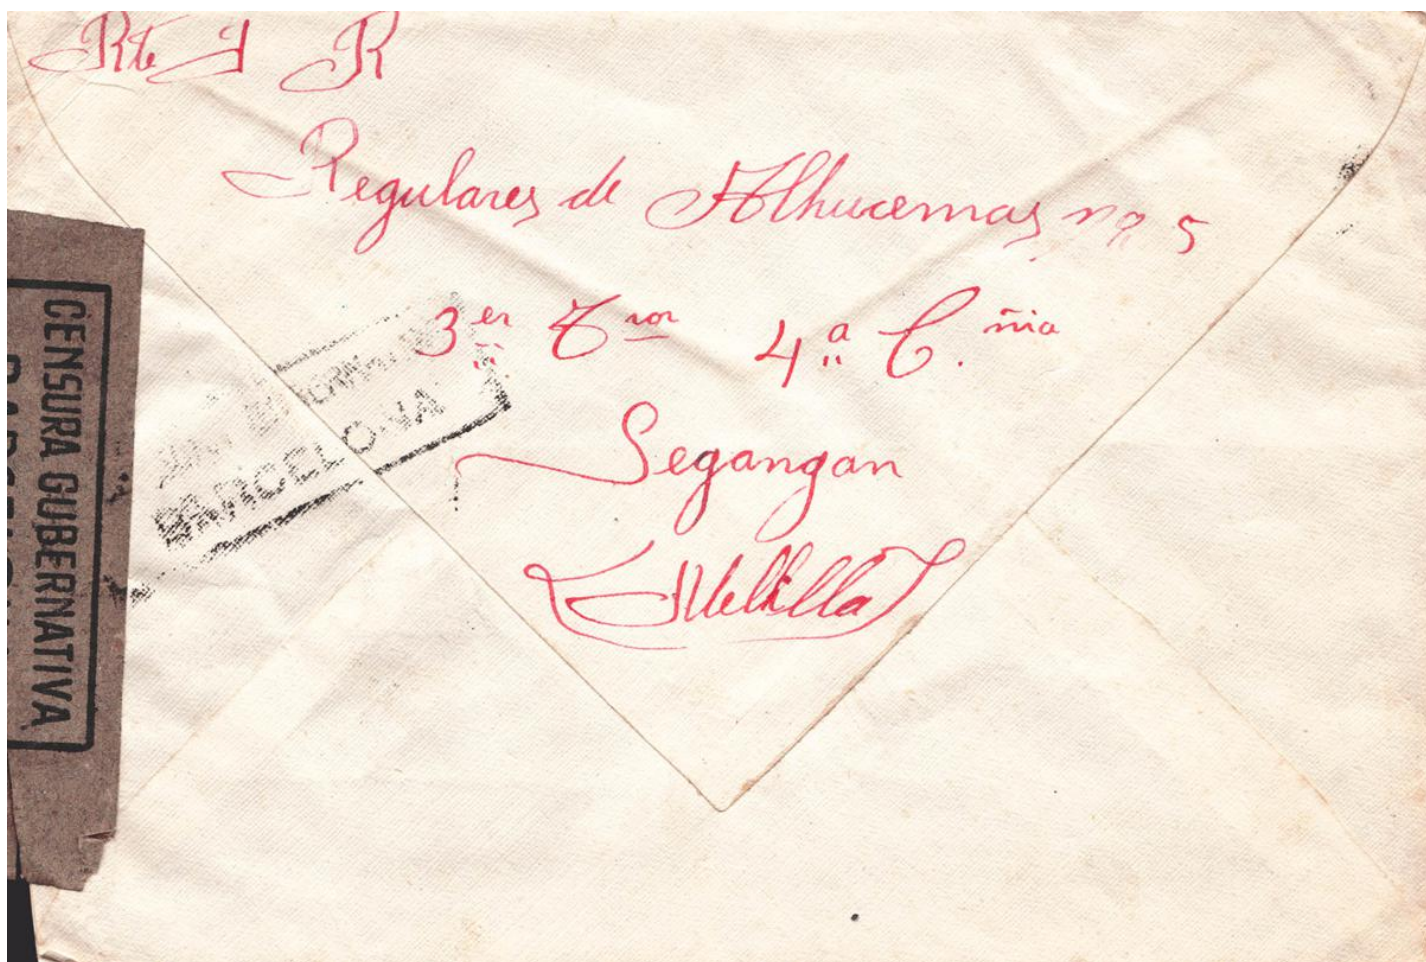 Rte J R
Regulares de Alhucemas nº 5
3er Tvor 4ª C.ñia
Segangan
Melilla
CENSURA GUBERNATIVA
BARCELONA